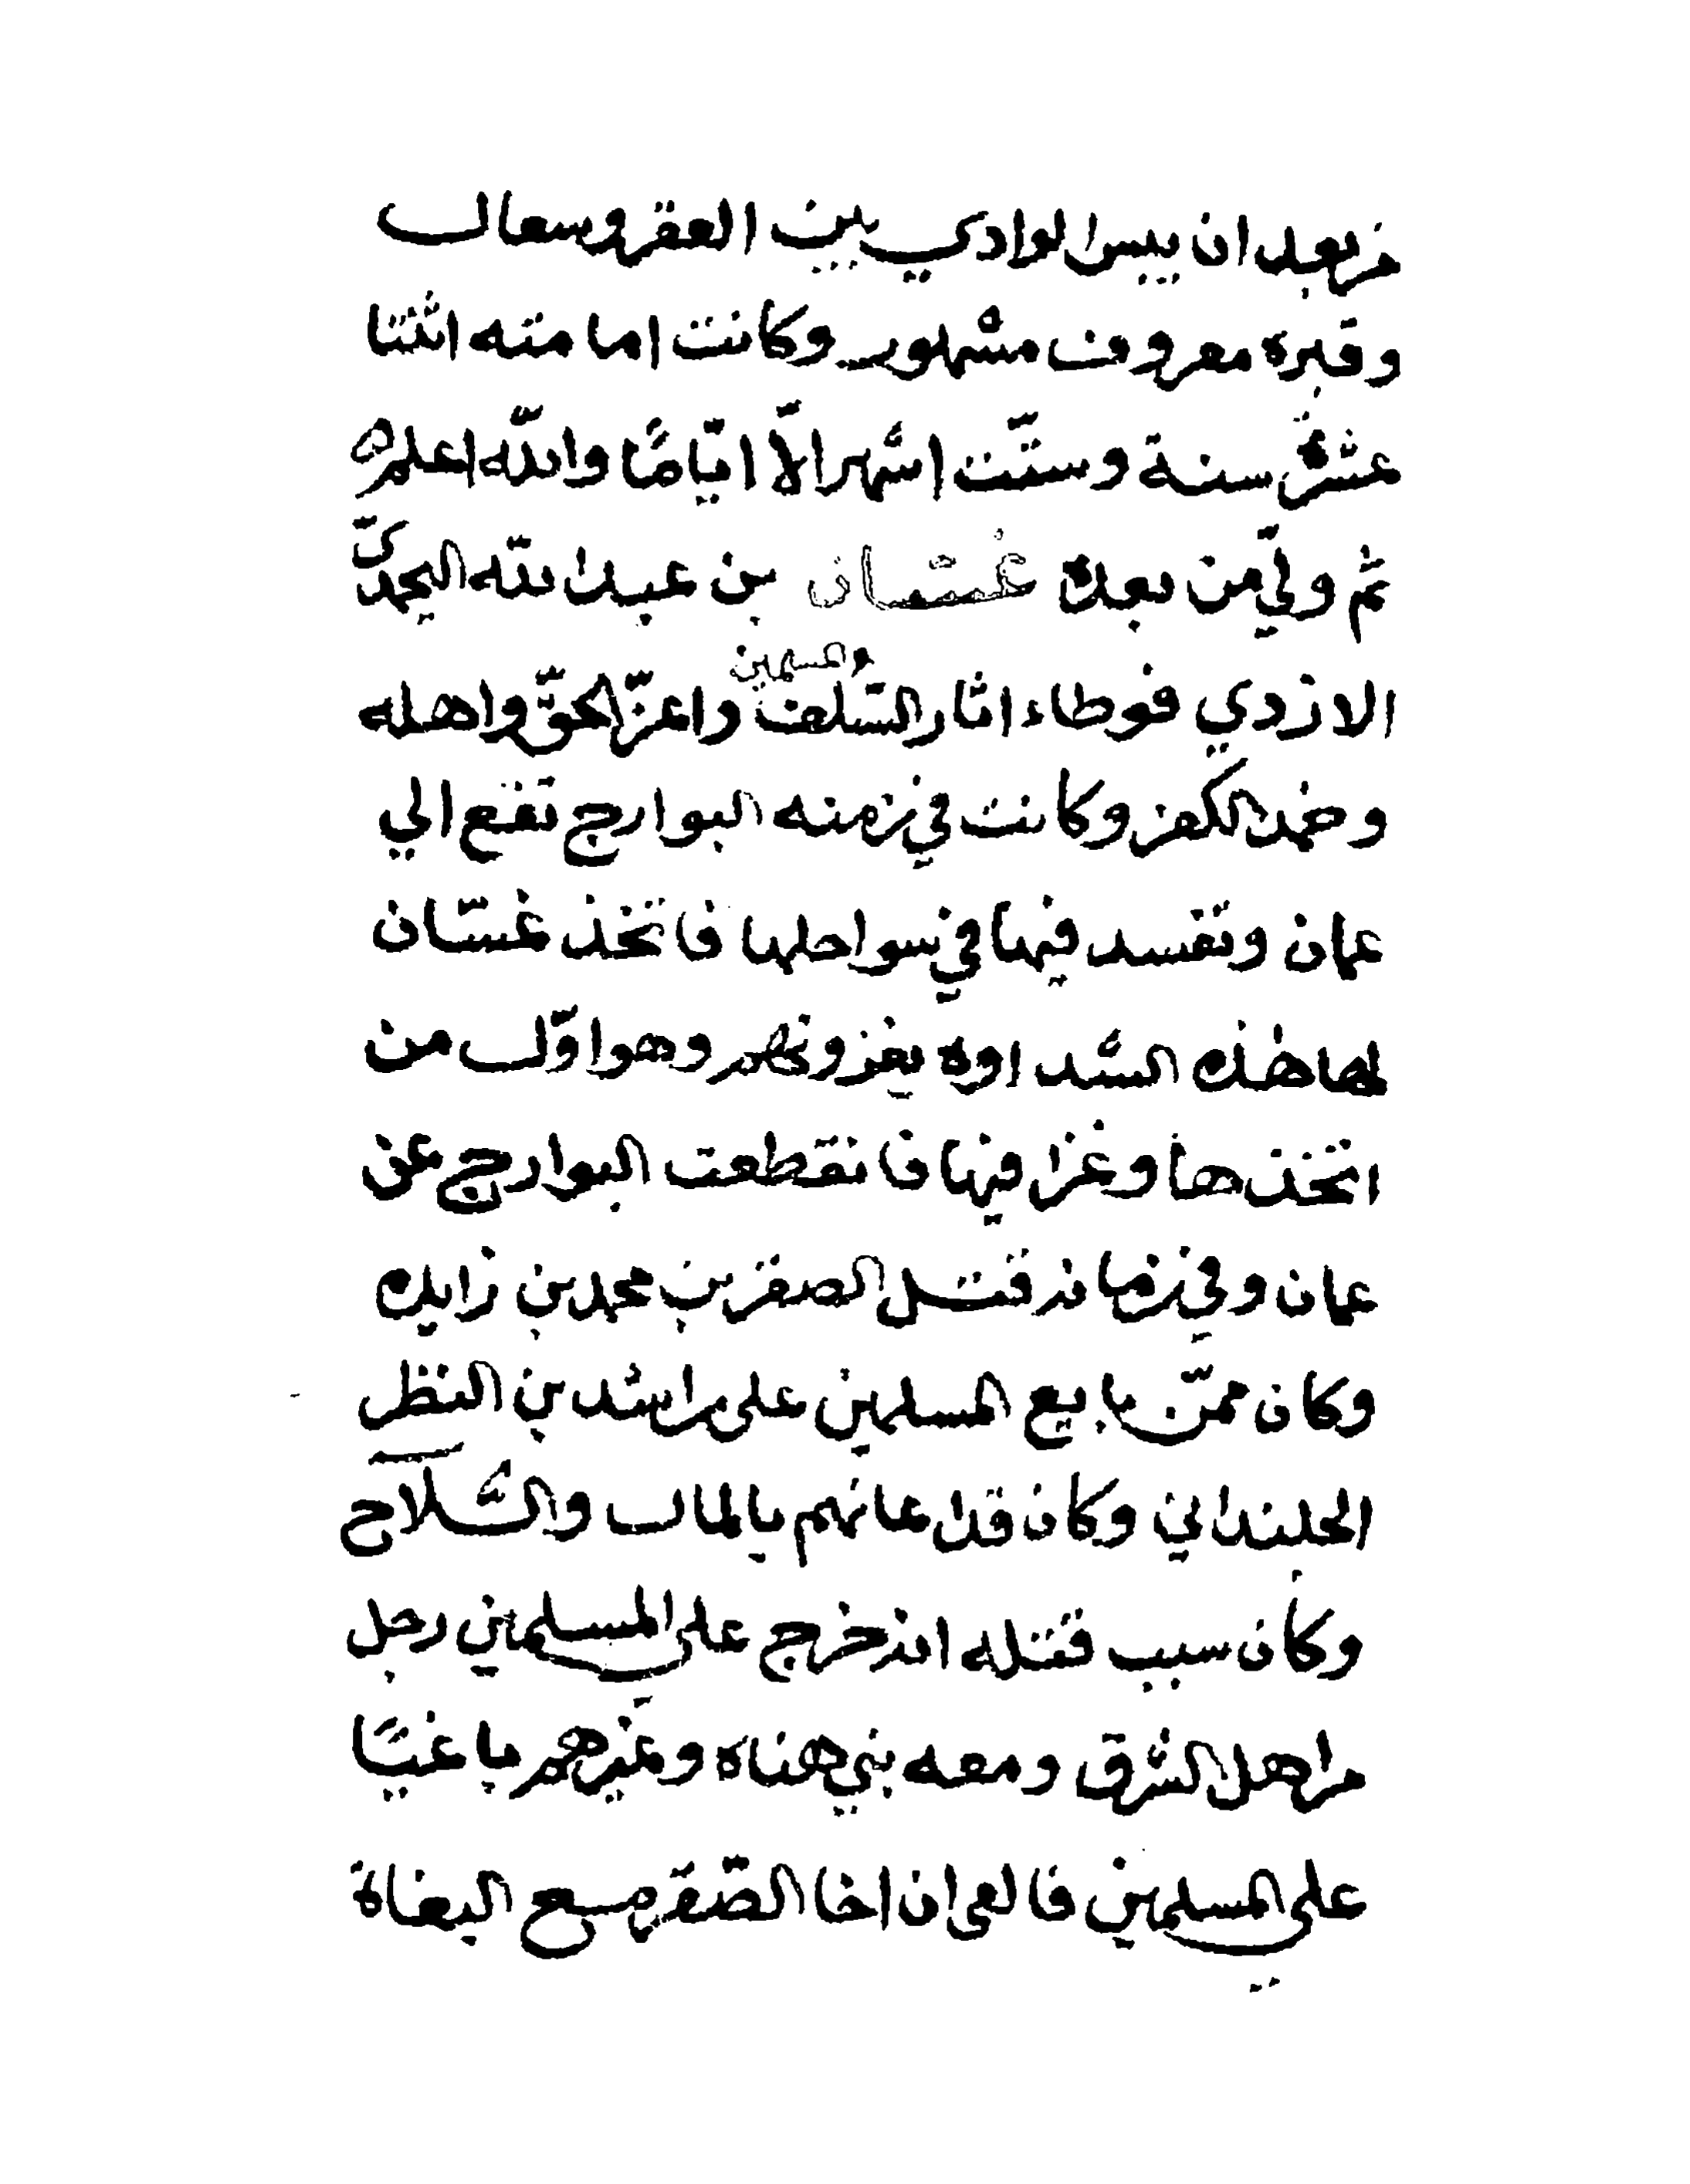 من بعد ان يبس الوادي بين العقر وسعال
وقبره معروف مشهور وكانت امامته اثنتا
عشرة سنة وستّت اشهر الاّ ايّامًا والله اعلم
ثم ولّي من بعده غسّان بن عبد الله اليحمديّ
الازدي فوطاء اثار السّلف والمسلمين واعزّ الحقّ واهله
وخمد الكفر وكانت في زمنه البوارج تقع الي
عمان وتفسد فيها في سواحلها فاتخذ غسّان
لها هذه الشداوه يغزونهم وهو اوّل من
اتخذها وغزا فيها فانقطعت البوارج عن
عمان وفي زمانه قتل الصقر بن محمد بن زايده
وكان ممّن بايع المسلمين على راشد بن النظر
الجلنداني وكان قد اعانهم بالمال والسّلاح
وكان سبب قتله انه خرج على المسلمين رجل
من اهل الشرق ومعه بني هناه وغيرهم باغيًا
علي المسلمين فالعي ان اخا الصّقر مع البغاة